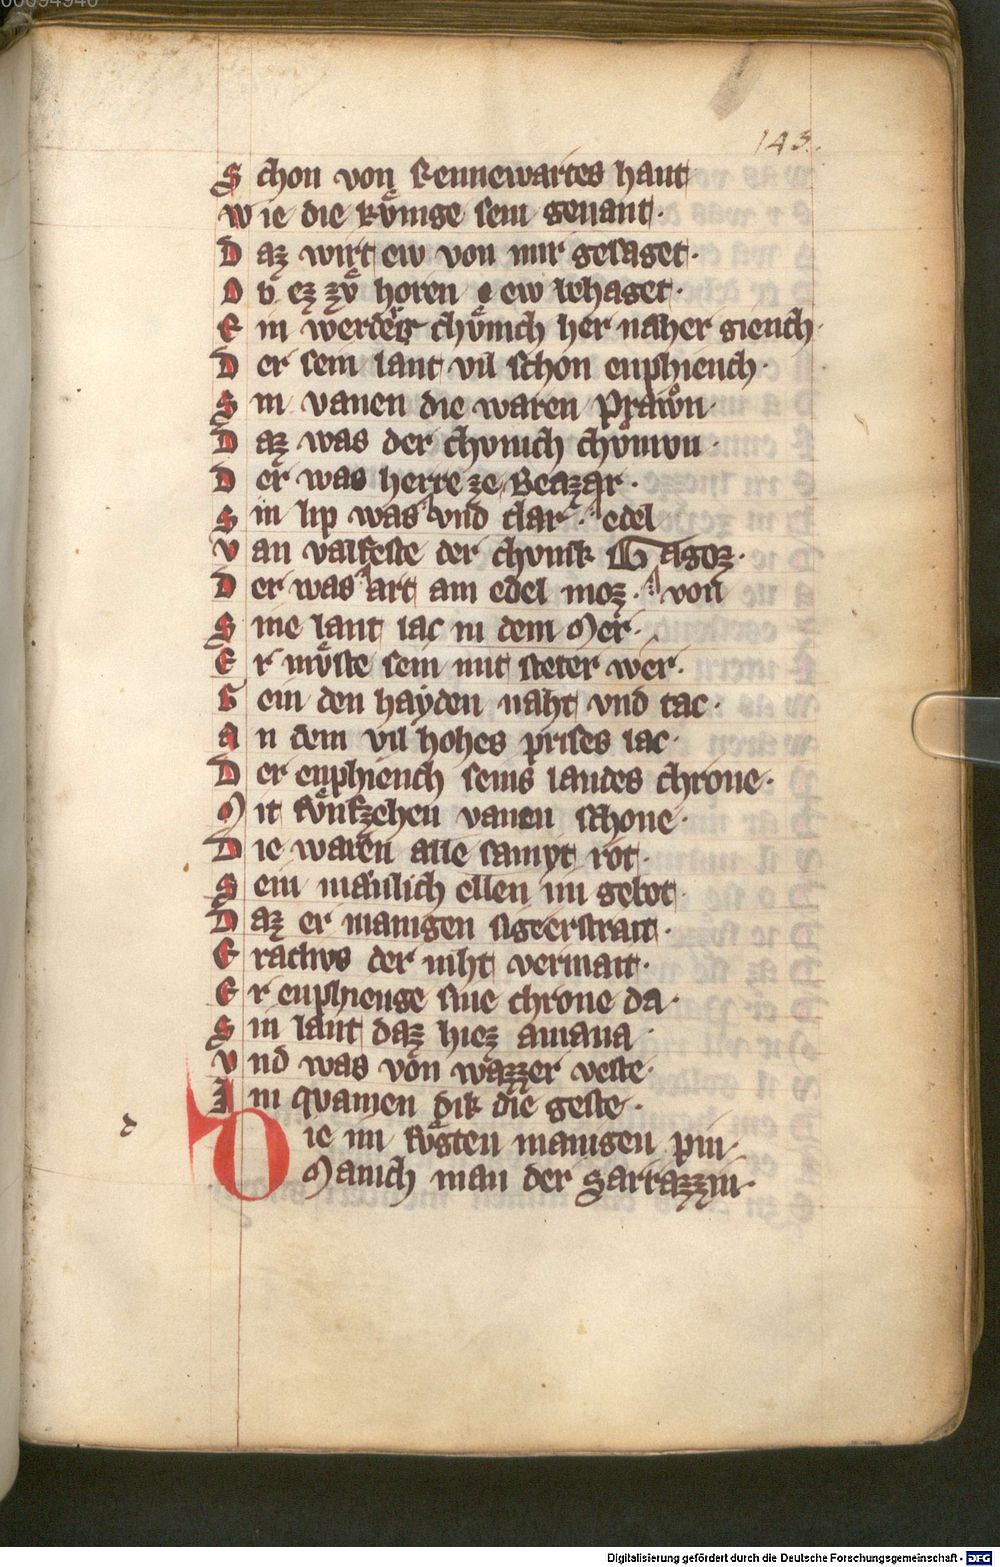 00094946
143.
S chon von Rennewartes hant
W ie die kv̊nige sein genant·
D az wirt ew von mir gesaget·
O b ez zv̊ horen ew behaget·
E in werder chv̊nich her naher giench·
D er sein lant vil schon enphiench·
S in vanen die waren prawn·
D az was der chvnich
D er was herre ze Beazar·
S in lip was vnd clar· edel
V an valfeste der chvnik Gagoz·
D er was art am edel moz· von
S ine lant lac in dem Mer·
E r mv̊ste sein mit steter wer·
G ein den hayden naht vnd tac·
A n dem vil hohes prises lac·
D er enphiench seins landes chrone·
M it fv̊nfzehen vanen schone·
D ie waren alle samyt rot·
S ein mänlich ellen im gebot·
D az er manigen sigesstrait·
E der niht vermait·
E r enphienge sine chrone da·
S in lant daz hiez
V nd was von wazzer veste·
I m qvamen dik die geste·
D ie im fv̊gten manigen pin·
Manich man der Sarrazzin·
Digitalisierung gefördert durch die Deutsche Forschungsgemeinschaft - DFG